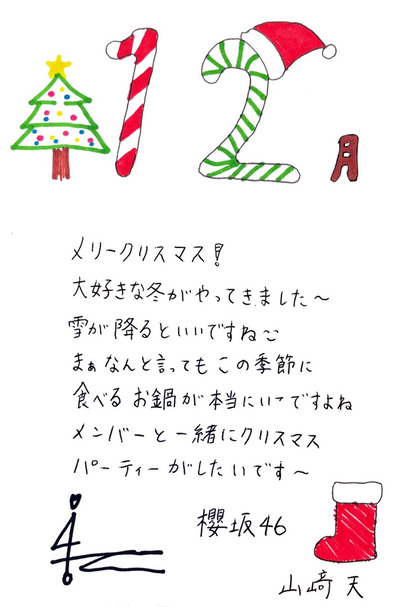 12月
メリークリスマス!
大好きな冬がやってきました〜
雪が降るといいですね
まぁなんと言ってもこの季節に
食べるお鍋が本当にいーですよね
メンバーと一緒にクリスマス
パーティーがしたいです〜
櫻坂46
山﨑天